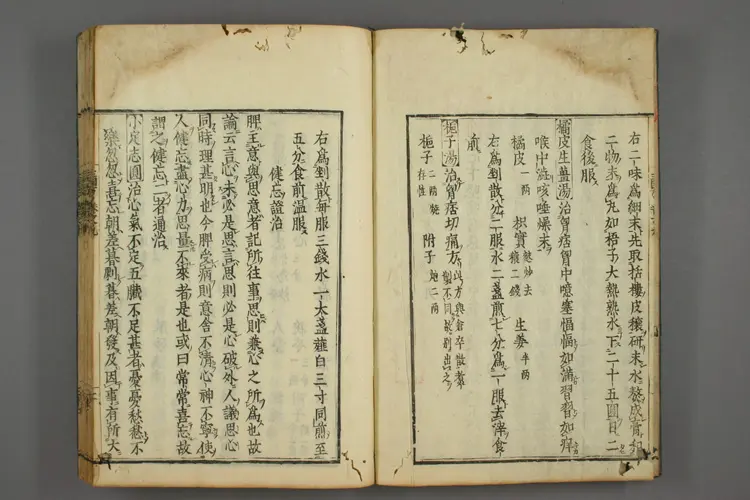 右二味爲細末先取括樓皮穰研末水熬成膏和
二物末爲丸如梧子大熱熟水下二十五圓日二
食後服
橘皮生薑湯治胷痞胷中噎塞愊愊如滿習習如痒
喉中澁咳唾燥末
橘皮一兩 枳實麸炒去穰二錢 生姜半兩
右爲剉散分二服水二盞煎七分爲一服去滓食
前
梔子湯治胷痞切痛方
梔子二兩燒存性 附子炮二兩
右爲剉散每服三錢水一大盞薤白三寸同煎至
五分食前温服
健忘證治
脾主意與思意者記所往事思則兼心之所爲也故
論云言心未必是思言思則必是心破外人議思心
同時理甚明也今脾受病則意舍不淸心神不寧使
人健忘盡心力思量不來者是也或曰常常喜忘故
謂之健忘二者通治
小定志圓治心氣不定五臓不足甚者憂憂愁愁不
樂忽忽喜忘朝差暮剰暮差朝發及因事有所大